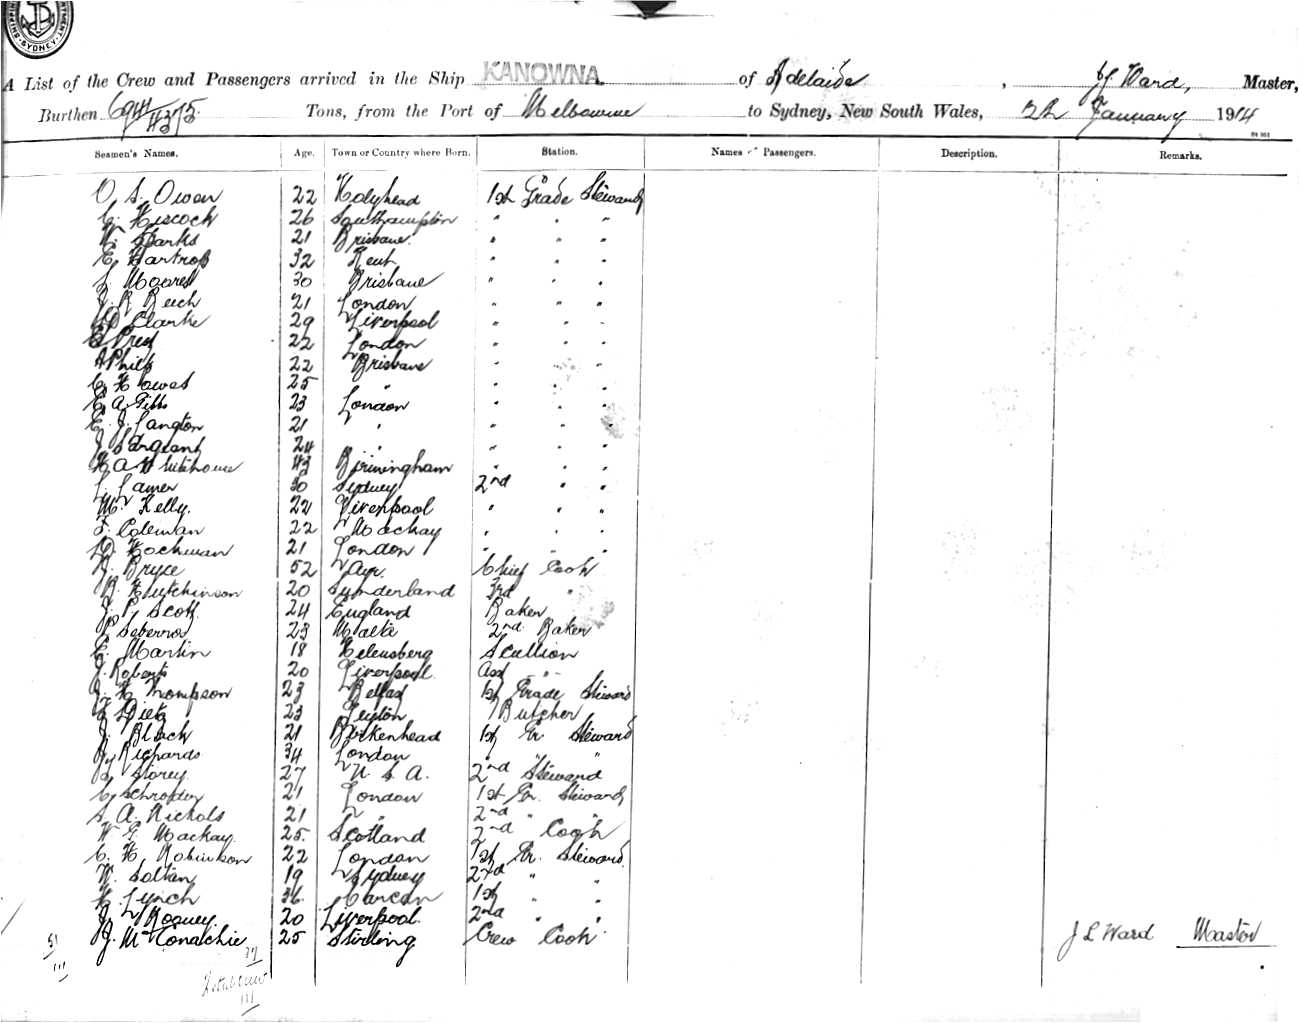 SYDNEY
A List of the Crew and Passengers arrived in the Ship KANOWNA of Adelaide, J L Ward, Master,
Burthen Tons, from the Port of Melbourne to Sydney, New South Wales, 22 January 1914
Seamen's Names. Age. Town or Country where Born. Station. Names of Passengers. Description. Remarks.
O. S. Owen 22 Holyhead 1st Grade Steward
C. Hiscock 26 Southampton " " "
W. Sparks 21 Brisbane " " "
E. Hartrop 32 Kent " " "
30 Brisbane " " "
J. R. Beech 21 London " " "
Clarke 29 Liverpool " " "
22 London " " "
22 Brisbane " " "
C. Howes 25 " " " "
E. A. Gibbs 23 London " " "
E. J. Langton 21 " " " "
J. Sargeant 24 " " " "
H. A. Whitehouse 43 Birmingham " " "
30 Sydney 2nd " "
M. Kelly. 22 Liverpool " " "
F. Coleman 22 Mackay " " "
D. Hockman 21 London " " "
Bryce 52 Ayr. Chief Cook
R. Hutchinson 20 Sunderland 3rd "
J. P. Scott 24 England Baker
P. 23 Malta 2nd Baker
C. Martin 18 Helensberg Scullion
J. Roberts 20 Liverpool Asst "
J. H. Thompson 23 Belfast 1st Grade Steward
Dietz 23 Leyton Butcher
J. Black 21 Birkenhead 1st Gr. Steward
Richards 34 London " " "
Storey. 27 U. S. A. 2nd Steward
C. 21 London 1st Gr. Steward
S. A. Nichols 21 " 2nd " "
W. G. Mackay. 25. Scotland 2nd Cook
C. H. Robinson 22 London 1st Gr. Steward
W. Soltan 19 Sydney 2nd " "
H. Lynch 36. 1st " "
J. Rooney 20 Liverpool. 2nd " "
J. McConachie 25 Stirling Crew Cook J L Ward Master
51
111
111